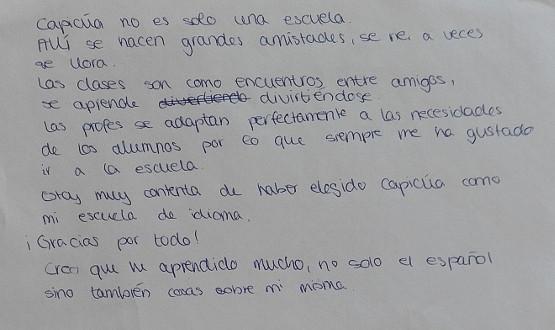 Capicúa no es solo una escuela.
Allí se hacen grandes amistades, se ríe, a veces
se llora.
Las clases son como encuentros entre amigos,
se aprende divertiendo divirtiéndose.
Las profes se adaptan perfectamente a las necesidades
de los alumnos por lo que siempre me ha gustado
ir a la escuela.
Estoy muy contenta de haber elegido Capicúa como
mi escuela de idioma.
¡Gracias por todo!
Creo que he aprendido mucho, no solo el español
sino también cosas sobre mi misma.